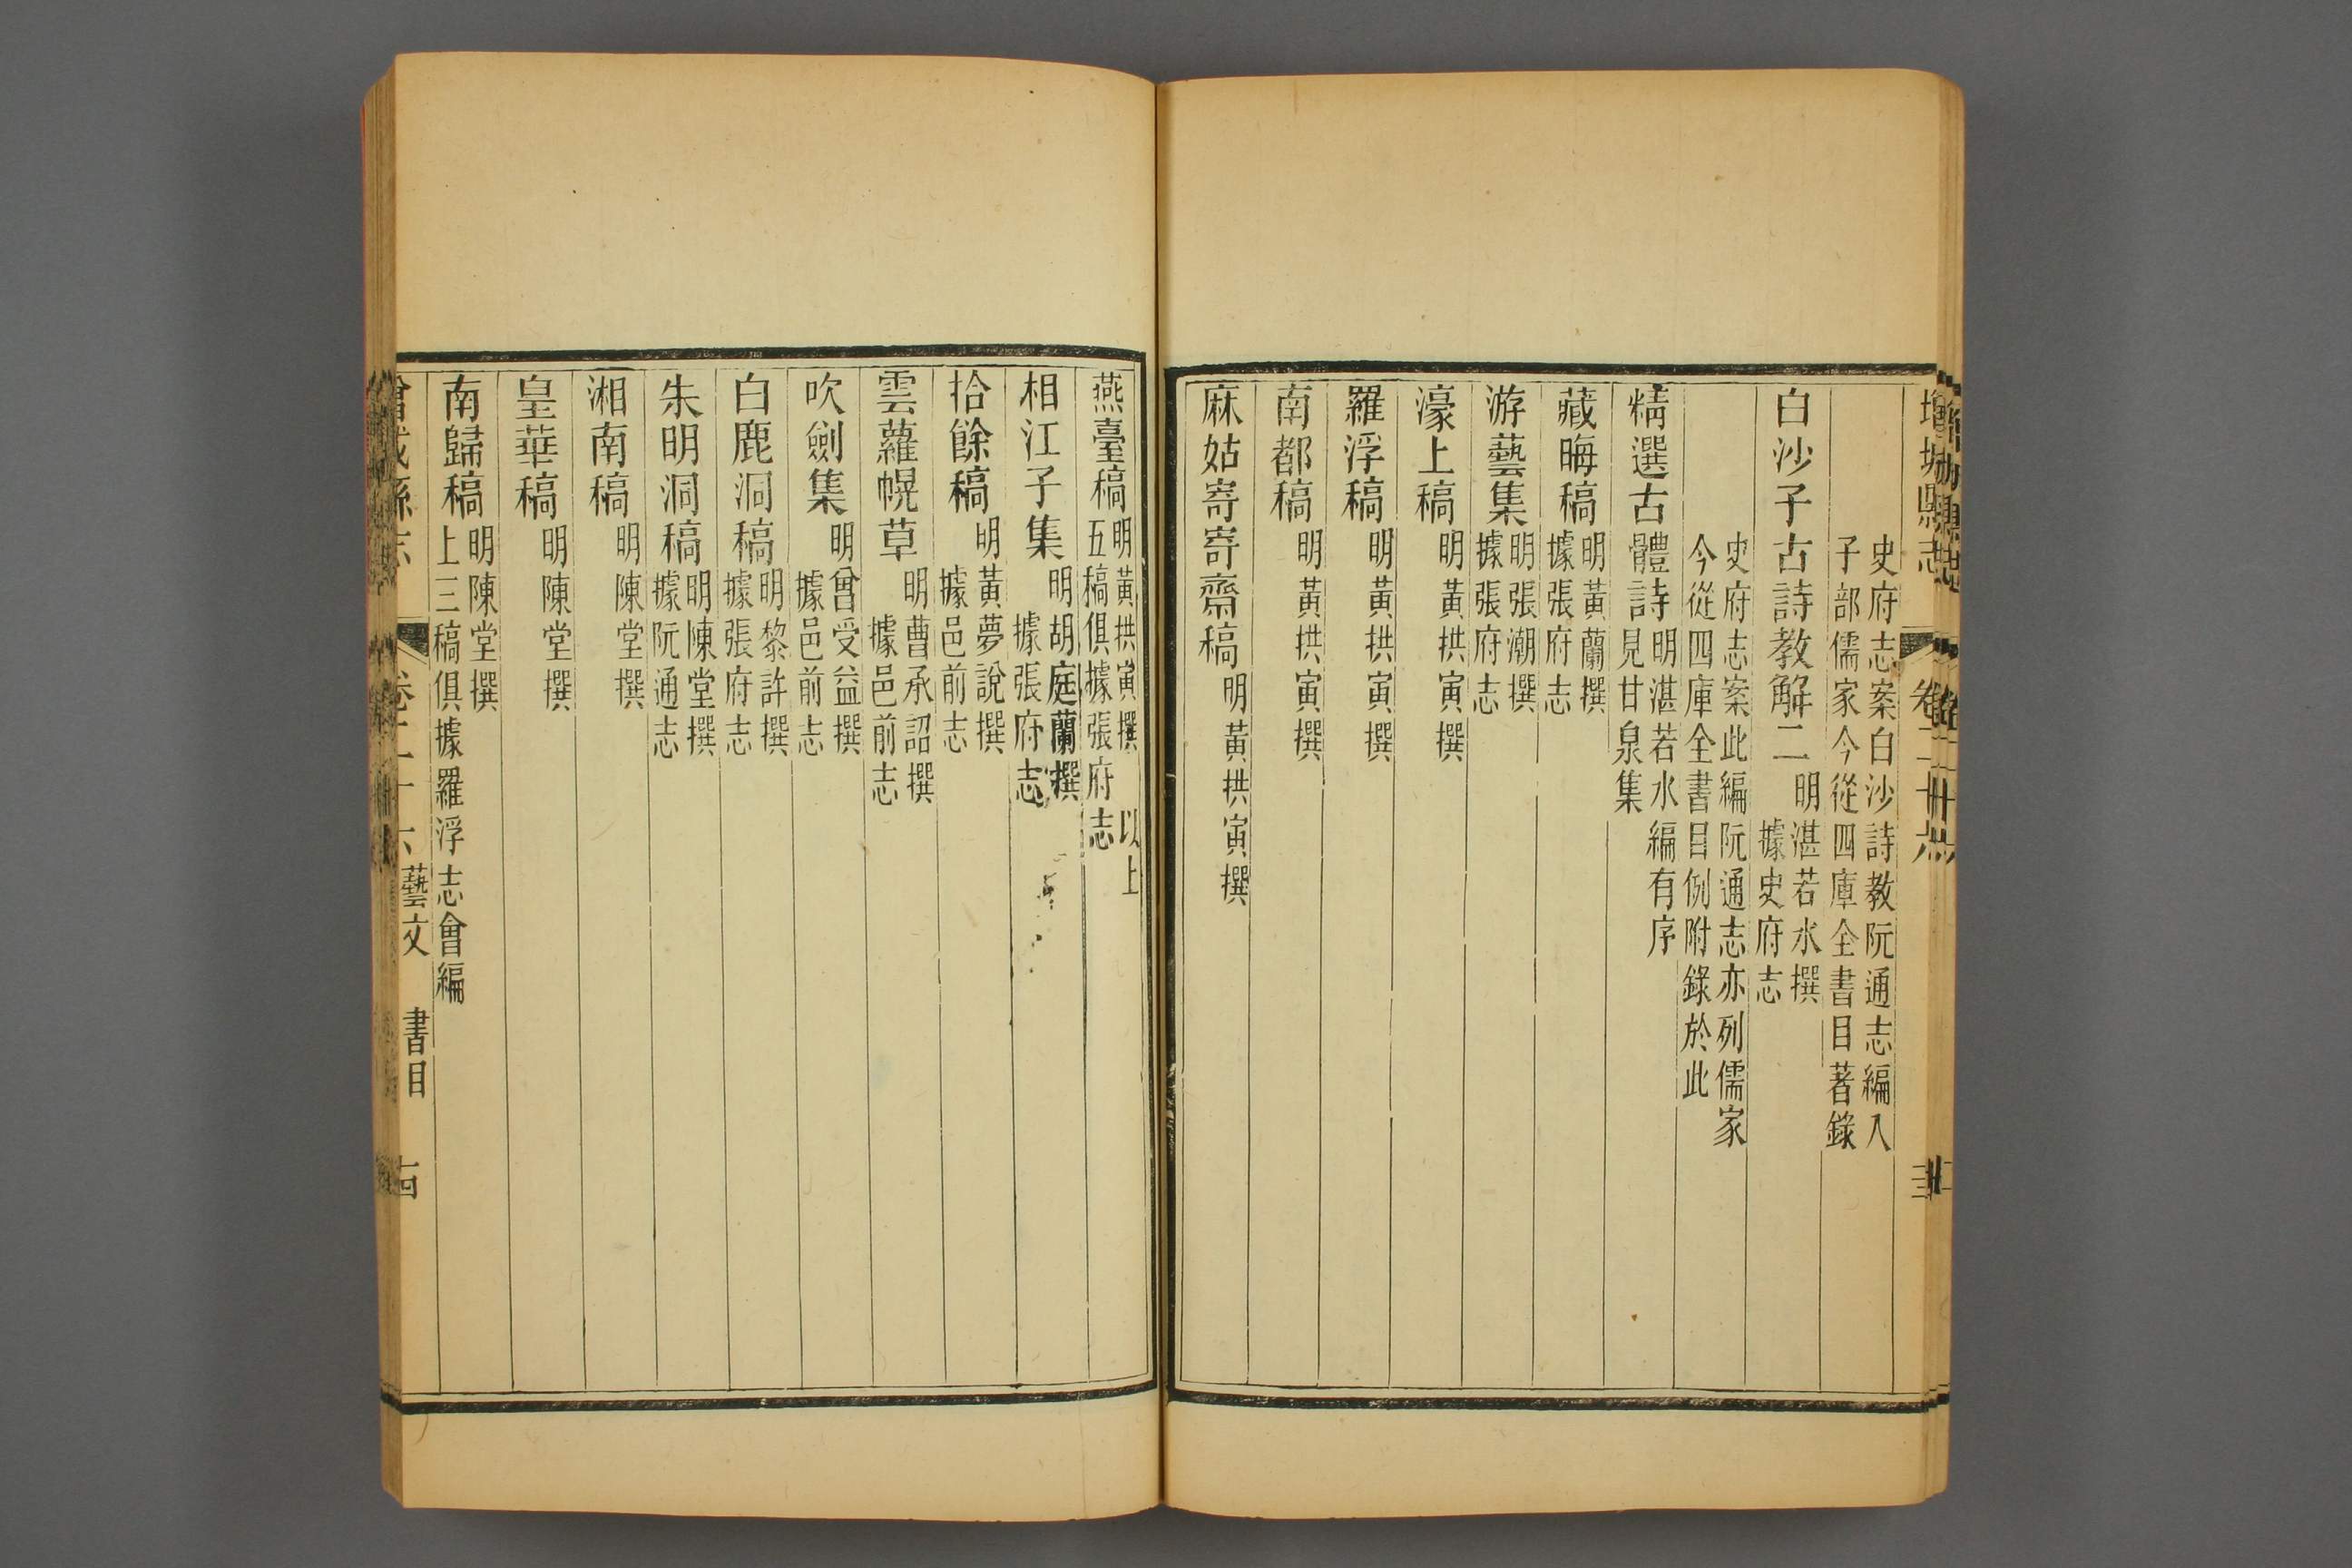 增城縣志 卷二十六
史府志案白沙詩教阮通志編入
子部儒家今從四庫全書目著錄
白沙子古詩教解二 明湛若水撰
據史府志
史府志案此編阮通志亦列儒家
今從四庫全書目例附錄於此
精選古體詩 明湛若水編有序
見甘泉集
藏晦稿 明黃蘭撰
據張府志
游藝集 明張潮撰
據張府志
濠上稿 明黃拱寅撰
羅浮稿 明黃拱寅撰
南都稿 明黃拱寅撰
麻姑寄寄齋稿 明黃拱寅撰
燕臺稿 明黃拱寅撰 以上
五稿俱據張府志
相江子集 明胡庭蘭撰
據張府志
拾餘稿 明黃夢說撰
據邑前志
雲蘿幌草 明曹承詔撰
據邑前志
吹劍集 明曾受益撰
據邑前志
白鹿洞稿 明黎許撰
據張府志
朱明洞稿 明陳堂撰
據阮通志
湘南稿 明陳堂撰
皇華稿 明陳堂撰
南歸稿 明陳堂撰
上三稿俱據羅浮志會編
增城縣志 卷二十六 藝文 書目 十四